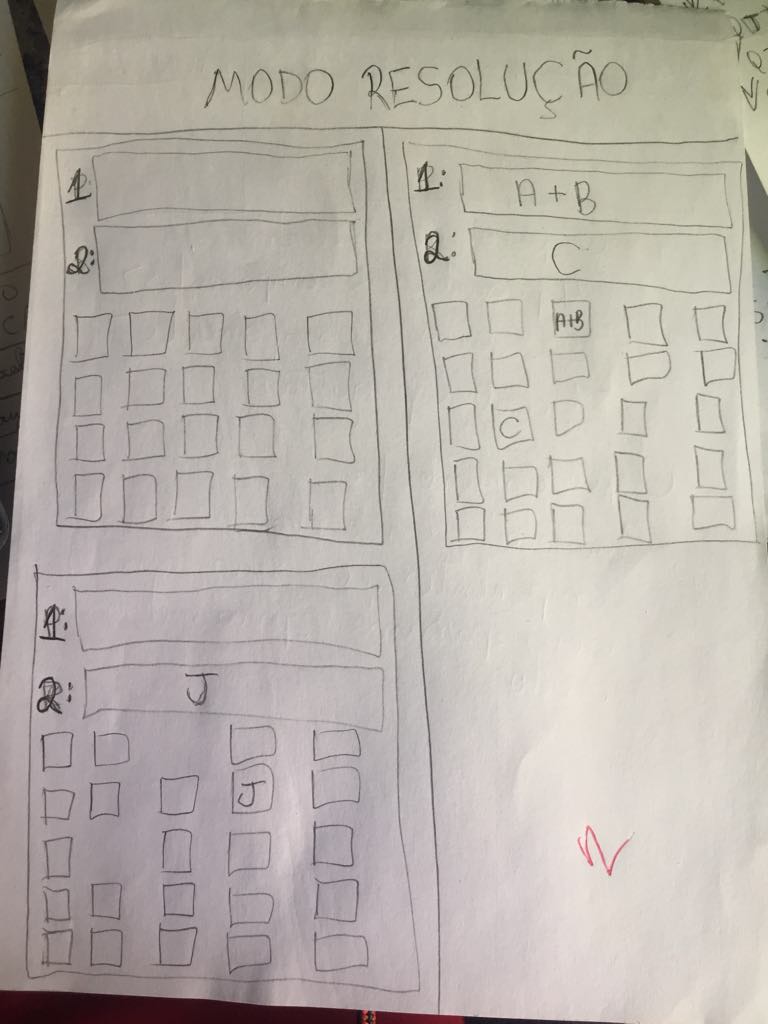 MODO RESOLUÇÃO
1:
2:
1: A+B
2: C
A+B
C
1:
2: J
J